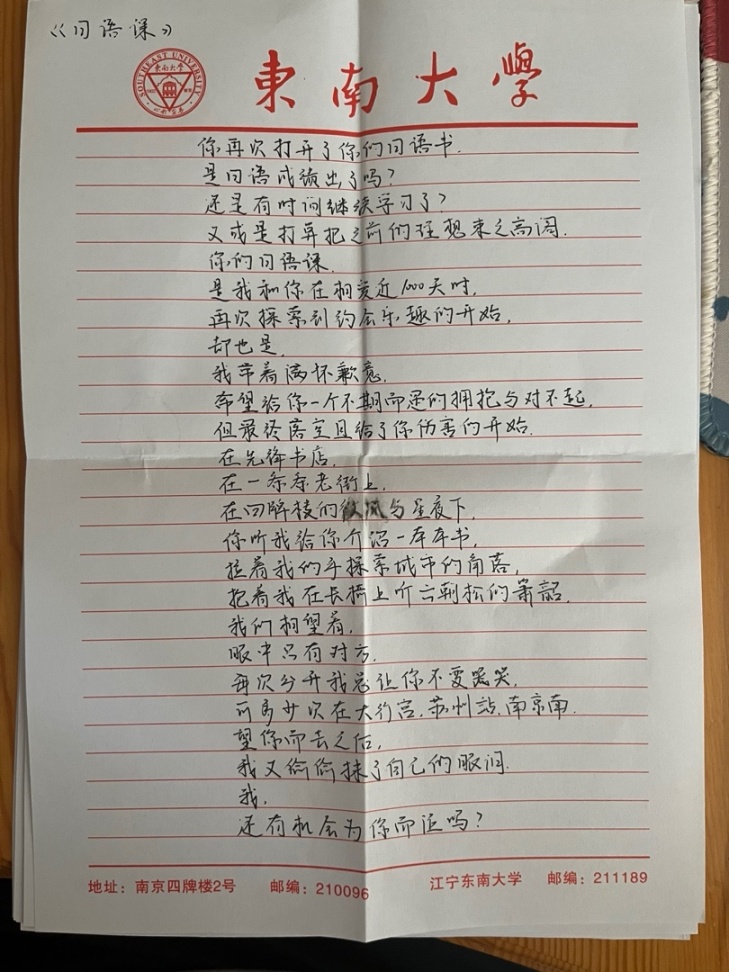 《日语课》
SOUTHEAST UNIVERSITY
東南大學
東南大學
你再次打开了你的日语书.
是日语成绩出了吗?
还是有时间继续学习了?
又或是打算把之前的理想束之高阁.
你的日语课.
是我和你在相爱近1000天时.
再次探索到约会乐趣的开始.
却也是.
我带着满怀歉意.
希望给你一个不期而遇的拥抱与对不起.
但最终落空且给了你伤害的开始.
在先锋书店.
在一条条老街上.
在四牌楼的微风与星夜下.
你听我给你介绍一本本书.
拉着我的手探索城市的角落.
抱着我在长椅上听六朝松的箫韶.
我们相望着.
眼中只有对方.
再次分开我总让你不要哭哭.
可多少次在大行宫.苏州站.南京南.
望你而去之后.
我又偷偷抹了自己的眼泪.
我.
还有机会为你而泣吗?
地址:南京四牌楼2号 邮编:210096 江宁东南大学 邮编:211189